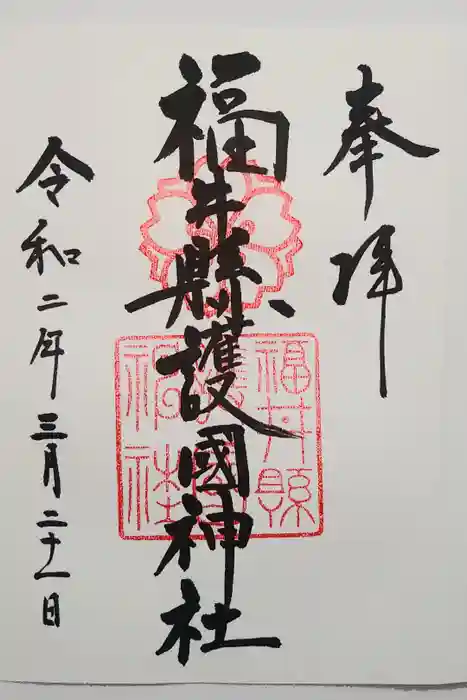 奉拝
福井縣護國神社
令和二年三月二十一日
福井縣
護國
神社